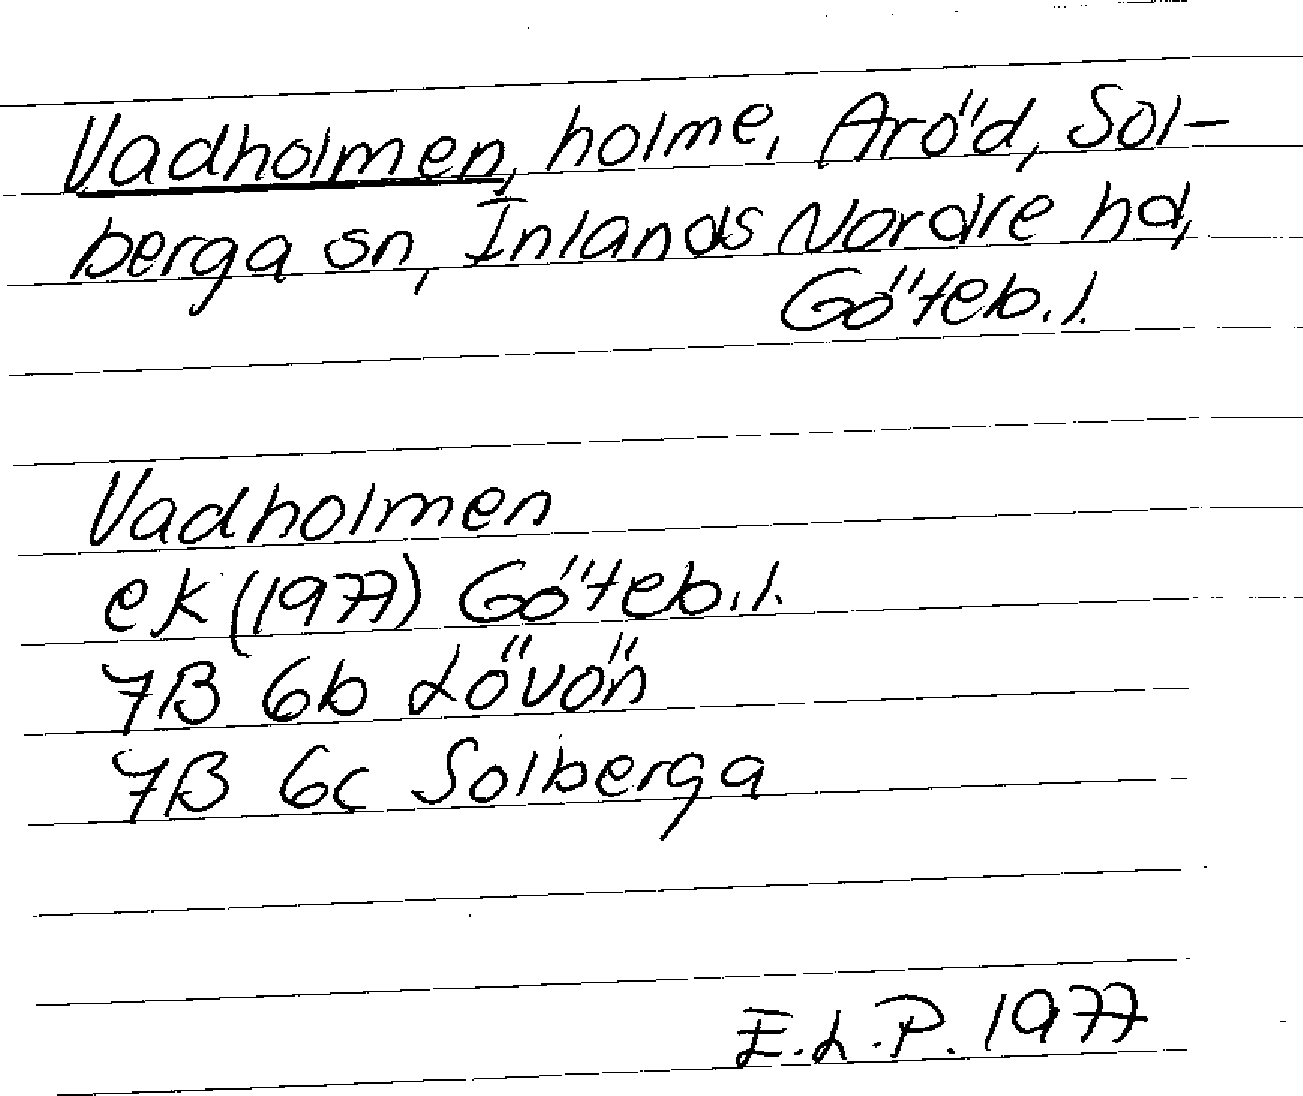 Vadholmen, holme, Aröd, Sol-
berga sn, Inlands Nordre hd,
Göteb.l.
Vadholmen
ek (1977) Göteb.l.
7B 6b Lövön
7B 6c Solberga
E.L.P. 1977